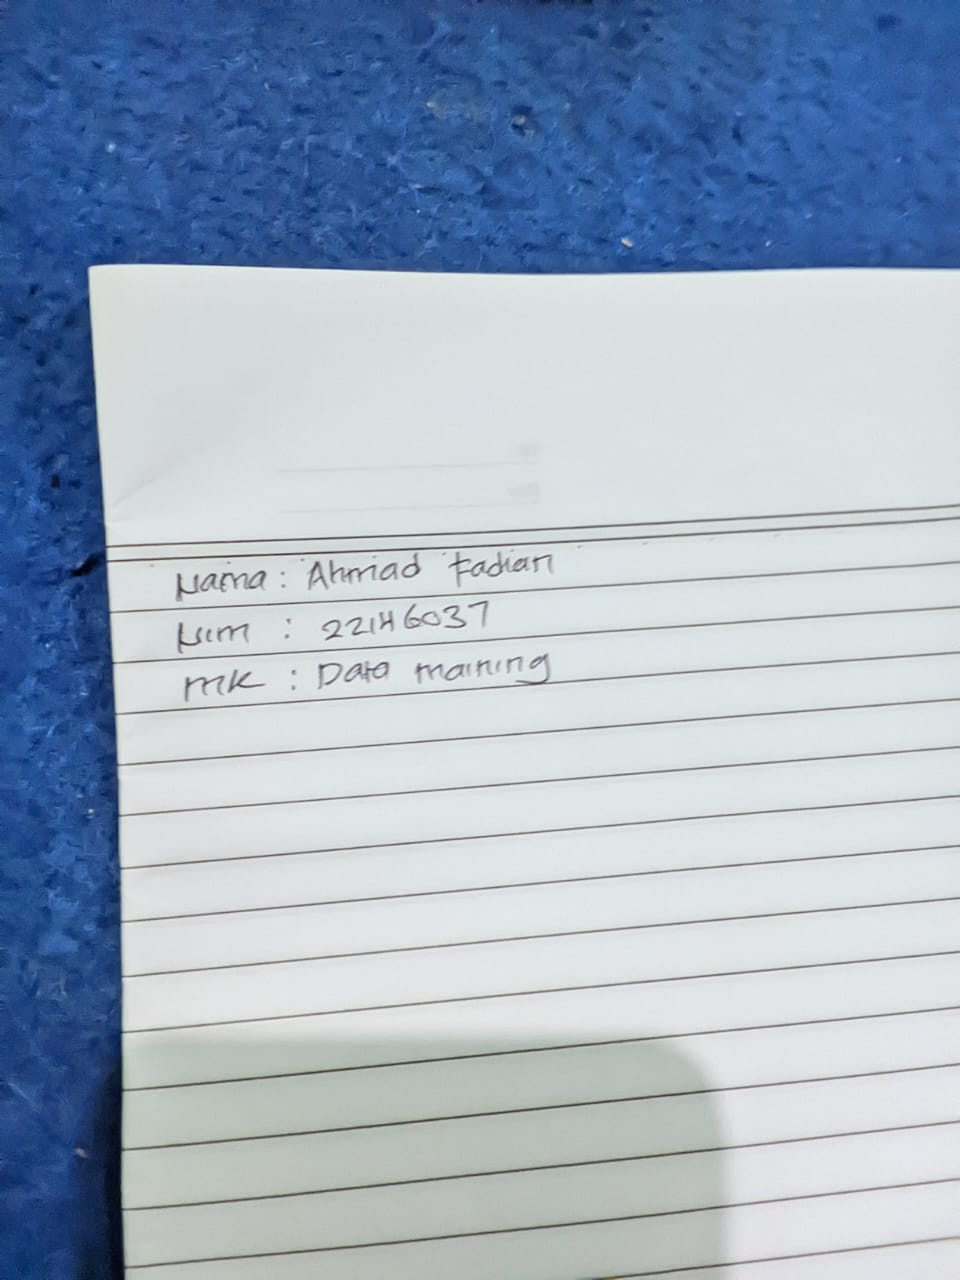 Nama : Ahmad Fadian
Nim : 22146037
MK : Data maining